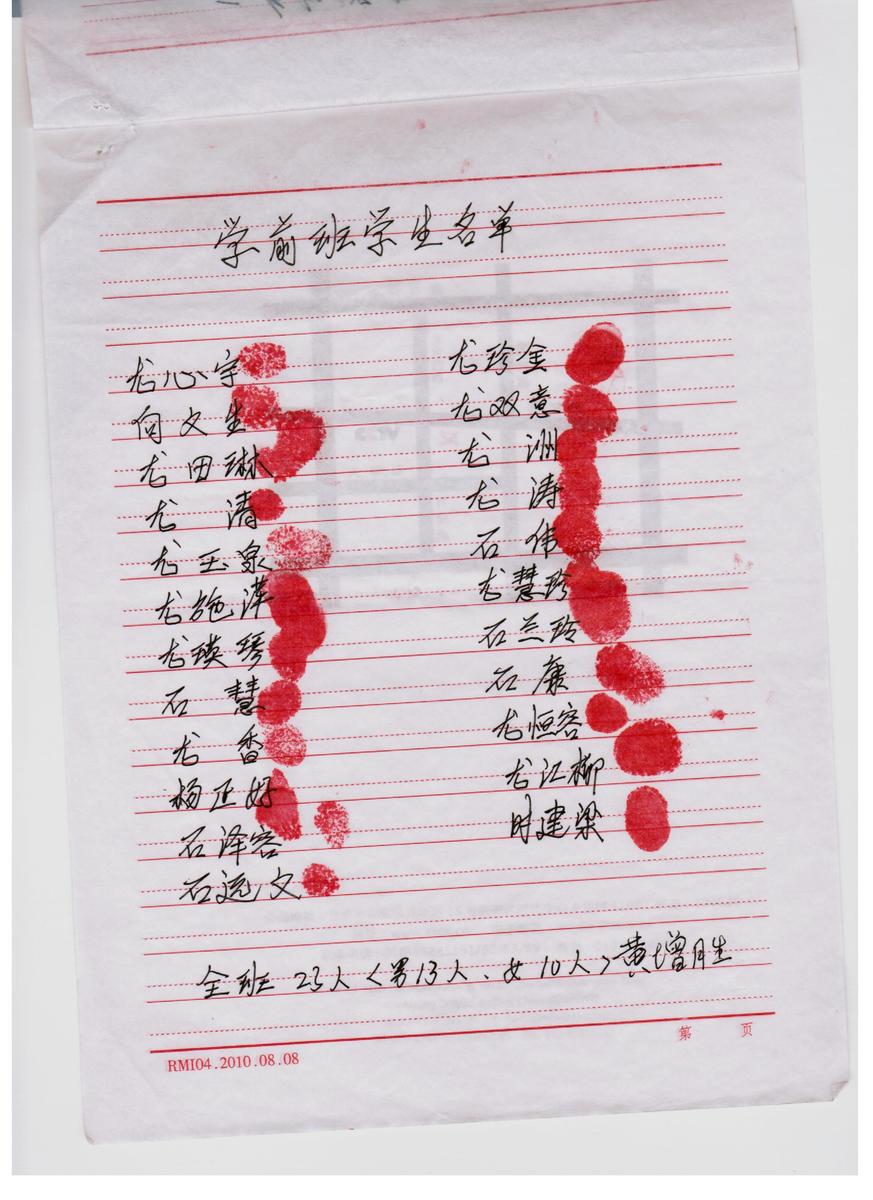 学前班学生名单
龙心宇
向文生
龙田琳
龙 清
龙玉泉
龙施萍
龙瑛琴
石 慧
龙 香
杨正好
石泽容
石远文
龙珍金
龙双意
龙 洲
龙 涛
石 伟
龙慧珍
石兰玲
石 康
龙恒容
龙江柳
时建梁
全班23人<男13人、女10人>黄增胜
第 页
RMI04.2010.08.08